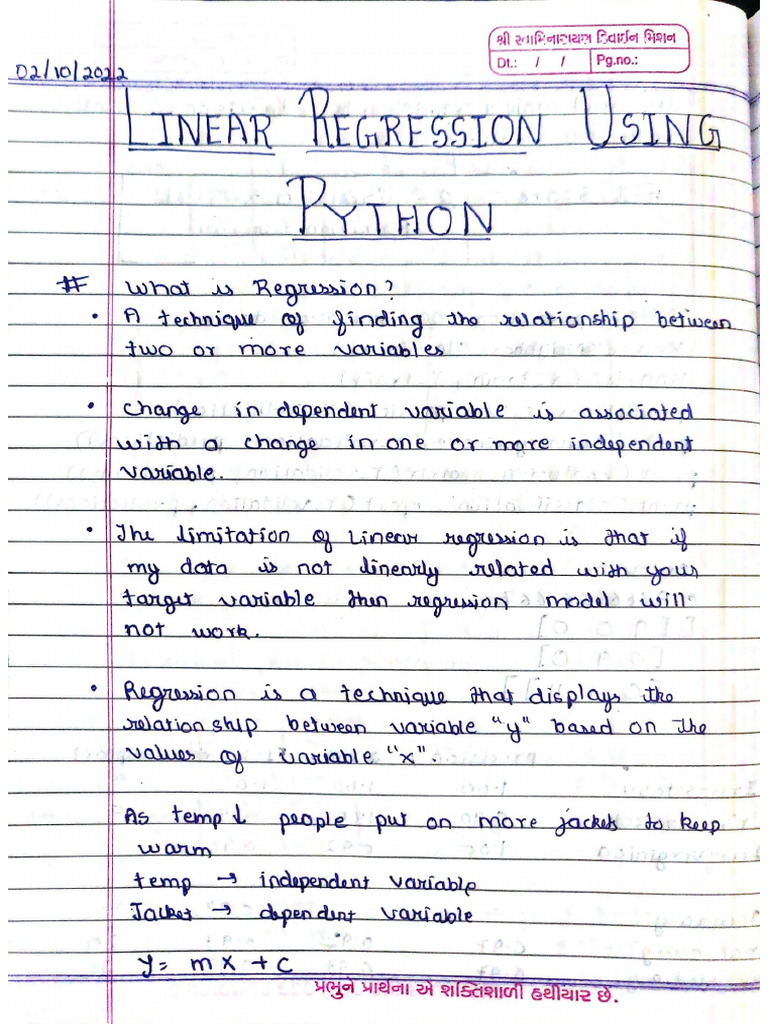 શ્રી સ્વામિનારાયણ ડિવાઈન મિશન
Dt.: / / Pg.no.:
02/10/2022
LINEAR REGRESSION USING
PYTHON
# What is Regression?
• A technique of finding the relationship between
two or more variables
• Change in dependent variable is associated
with a change in one or more independent
variable.
• The limitation of Linear regression is that if
my data is not linearly related with your
target variable then regression model will
not work.
• Regression is a technique that displays the
relationship between variable "y" based on the
values of variable "x".
As temp ↓ people put on more jackets to keep
warm
temp → independent variable
Jacket → dependent variable
y = mx + c
પ્રભુને પ્રાર્થના એ શક્તિશાળી હથીયાર છે.